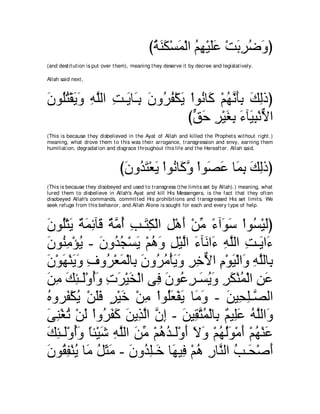 (وَضُرِبَتْ عَلَيْهِمُ الْمَسْكَنَةُ)
(and destitution is put over them), meaning they deserve it by decree and legislatively.
Allah said next,
(ذَلِكَ بِأَنَّهُمْ كَانُواْ يَكْفُرُونَ بِـَايَـتِ اللَّهِ وَيَقْتُلُونَ
الاٌّنبِيَآءَ بِغَيْرِ حَقٍّ)
(This is because they disbelieved in the Ayat of Allah and killed the Prophets without right.)
meaning, what drove them to this was their arrogance, transgression and envy, earning them
humiliation, degradation and disgrace throughout this life and the Hereafter. Allah said,
(ذَلِكَ بِمَا عَصَواْ وَّكَانُواْ يَعْتَدُونَ)
(This is because they disobeyed and used to transgress (the limits set by Allah).) meaning, what
lured them to disbelieve in Allah's Ayat and kill His Messengers, is the fact that they often
disobeyed Allah's commands, committed His prohibitions and transgressed His set limits. We
seek refuge from this behavior, and Allah Alone is sought for each and every type of help.
(لَيْسُواْ سَوَآءً مِّنْ أَهْلِ الْكِتَـبِ أُمَّةٌ قَآئِمَةٌ يَتْلُونَ
ءَايَـتِ اللَّهِ ءَانَآءَ الَّيْلِ وَهُمْ يَسْجُدُونَ - يُؤْمِنُونَ
بِاللَّهِ وَالْيَوْمِ الاٌّخِرِ وَيَأْمُرُونَ بِالْمَعْرُوفِ وَيَنْهَوْنَ
عَنِ الْمُنْكَرِ وَيُسَـرِعُونَ فِى الْخَيْرَتِ وَأُوْلَـئِكَ مِنَ
الصَّـلِحِينَ - وَمَا يَفْعَلُواْ مِنْ خَيْرٍ فَلَنْ يُكْفَروهُ
وَاللَّهُ عَلِيمٌ بِالْمُتَّقِينَ - إِنَّ الَّذِينَ كَفَرُواْ لَن تُغْنِىَ
عَنْهُمْ أَمْوَلُهُمْ وَلاَ أَوْلَـدُهُمْ مِّنَ اللَّهِ شَيْئًا وَأُوْلَـئِكَ
أَصْحَـبُ النَّارِ هُمْ فِيهَا خَـلِدُونَ - مَثَلُ مَا يُنْفِقُونَ